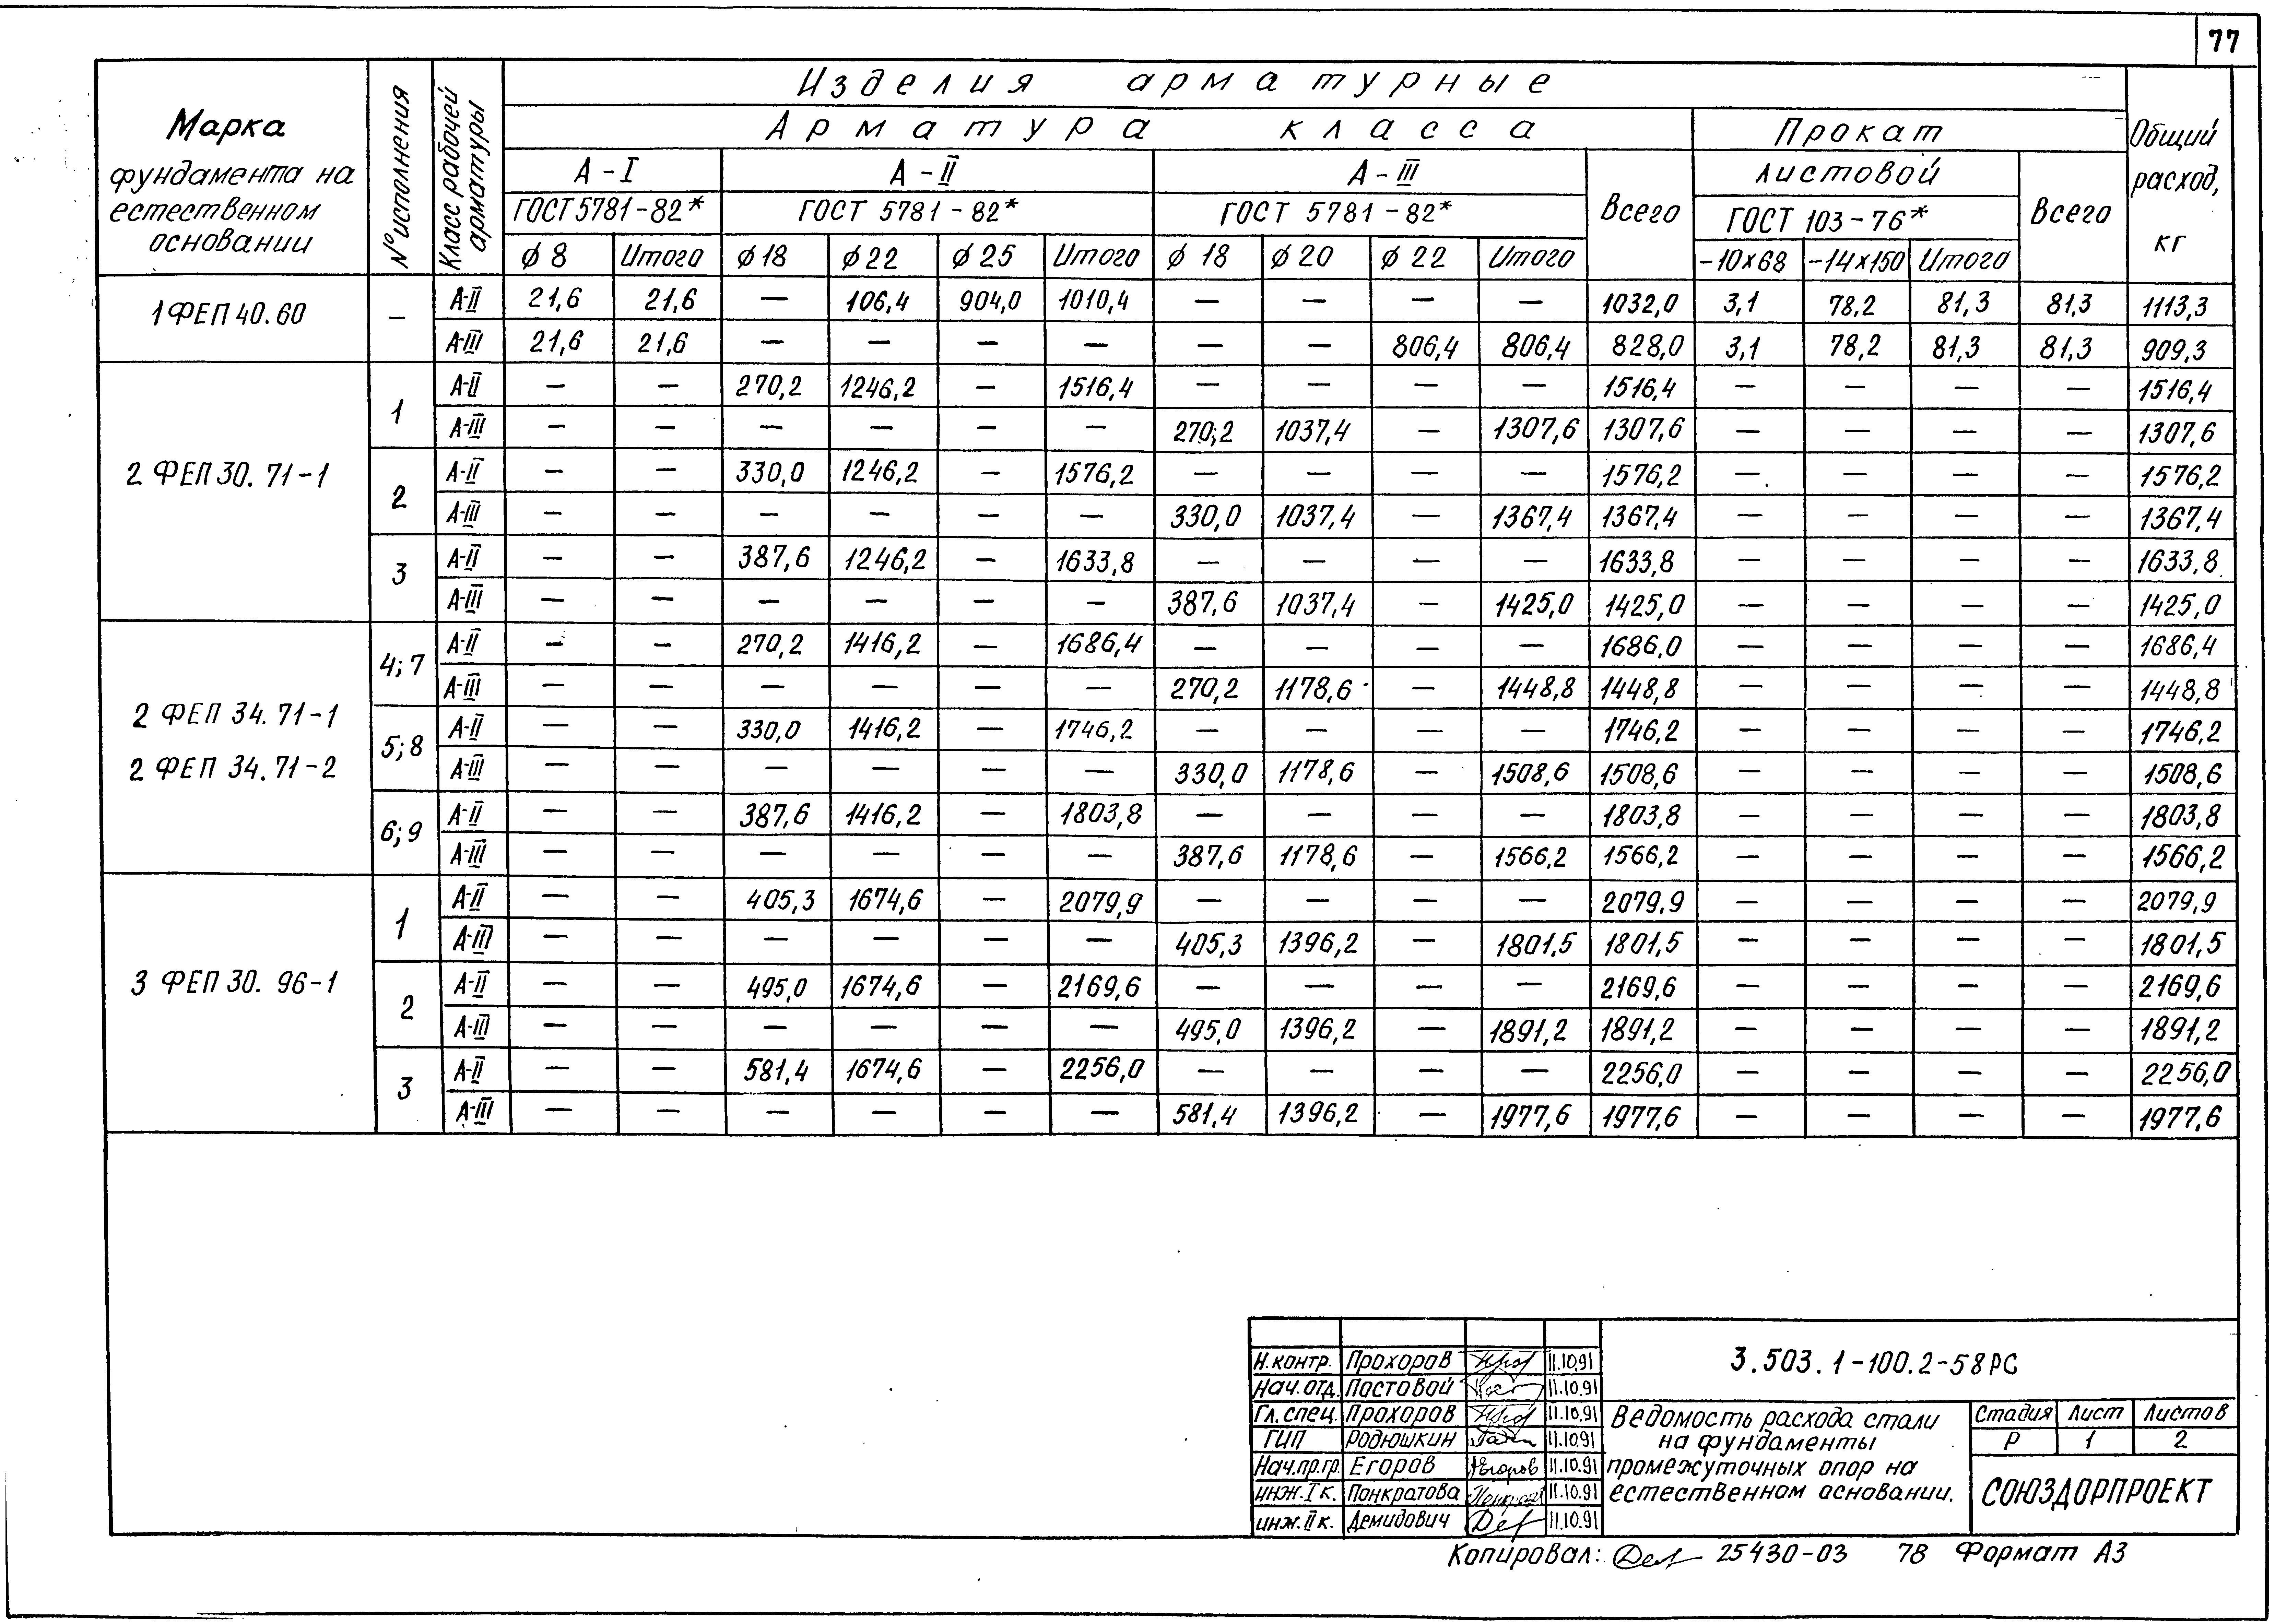 77
Изделия арматурные
Марка фундамента на естественном основании
№ исполнения
Класс рабочей арматуры
Арматура класса
Прокат
Общий расход, кг
А-I А-II А-III Всего листовой Всего
ГОСТ 5781-82* ГОСТ 5781-82* ГОСТ 5781-82* ГОСТ 103-76*
ϕ8 Итого ϕ18 ϕ22 ϕ25 Итого ϕ18 ϕ20 ϕ22 Итого -10×68 -14×150 Итого
1ФЕП 40.60 — А-II 21,6 21,6 — 106,4 904,0 1010,4 — — — — 1032,0 3,1 78,2 81,3 81,3 1113,3
А-III 21,6 21,6 — — — — — — 806,4 806,4 828,0 3,1 78,2 81,3 81,3 909,3
2 ФЕП 30.71-1 1 А-II — — 270,2 1246,2 — 1516,4 — — — — 1516,4 — — — — 1516,4
А-III — — — — — — 270,2 1037,4 — 1307,6 1307,6 — — — — 1307,6
2 А-II — — 330,0 1246,2 — 1576,2 — — — — 1576,2 — — — — 1576,2
А-III — — — — — — 330,0 1037,4 — 1367,4 1367,4 — — — — 1367,4
3 А-II — — 387,6 1246,2 — 1633,8 — — — — 1633,8 — — — — 1633,8
А-III — — — — — — 387,6 1037,4 — 1425,0 1425,0 — — — — 1425,0
2 ФЕП 34.71-1
2 ФЕП 34.71-2
4;7 А-II — — 270,2 1416,2 — 1686,4 — — — — 1686,0 — — — — 1686,4
А-III — — — — — — 270,2 1178,6 — 1448,8 1448,8 — — — — 1448,8
5;8 А-II — — 330,0 1416,2 — 1746,2 — — — — 1746,2 — — — — 1746,2
А-III — — — — — — 330,0 1178,6 — 1508,6 1508,6 — — — — 1508,6
6;9 А-II — — 387,6 1416,2 — 1803,8 — — — — 1803,8 — — — — 1803,8
А-III — — — — — — 387,6 1178,6 — 1566,2 1566,2 — — — — 1566,2
3 ФЕП 30.96-1 1 А-II — — 405,3 1674,6 — 2079,9 — — — — 2079,9 — — — — 2079,9
А-III — — — — — — 405,3 1396,2 — 1801,5 1801,5 — — — — 1801,5
2 А-II — — 495,0 1674,6 — 2169,6 — — — — 2169,6 — — — — 2169,6
А-III — — — — — — 495,0 1396,2 — 1891,2 1891,2 — — — — 1891,2
3 А-II — — 581,4 1674,6 — 2256,0 — — — — 2256,0 — — — — 2256,0
А-III — — — — — — 581,4 1396,2 — 1977,6 1977,6 — — — — 1977,6
Н.контр. Прохоров 11.10.91
Нач.отд. Постовой 11.10.91
Гл.спец. Прохоров 11.10.91
ГИП Родюшкин 11.10.91
Нач.пр.гр. Егоров Егоров 11.10.91
инж. I к. Понкратова 11.10.91
инж. II к. Демидович 11.10.91
3.503.1-100.2-58РС
Ведомость расхода стали
на фундаменты
промежуточных опор на
естественном основании.
Стадия Лист Листов
Р 1 2
СОЮЗДОРПРОЕКТ
Копировал: 25430-03 78 Формат А3